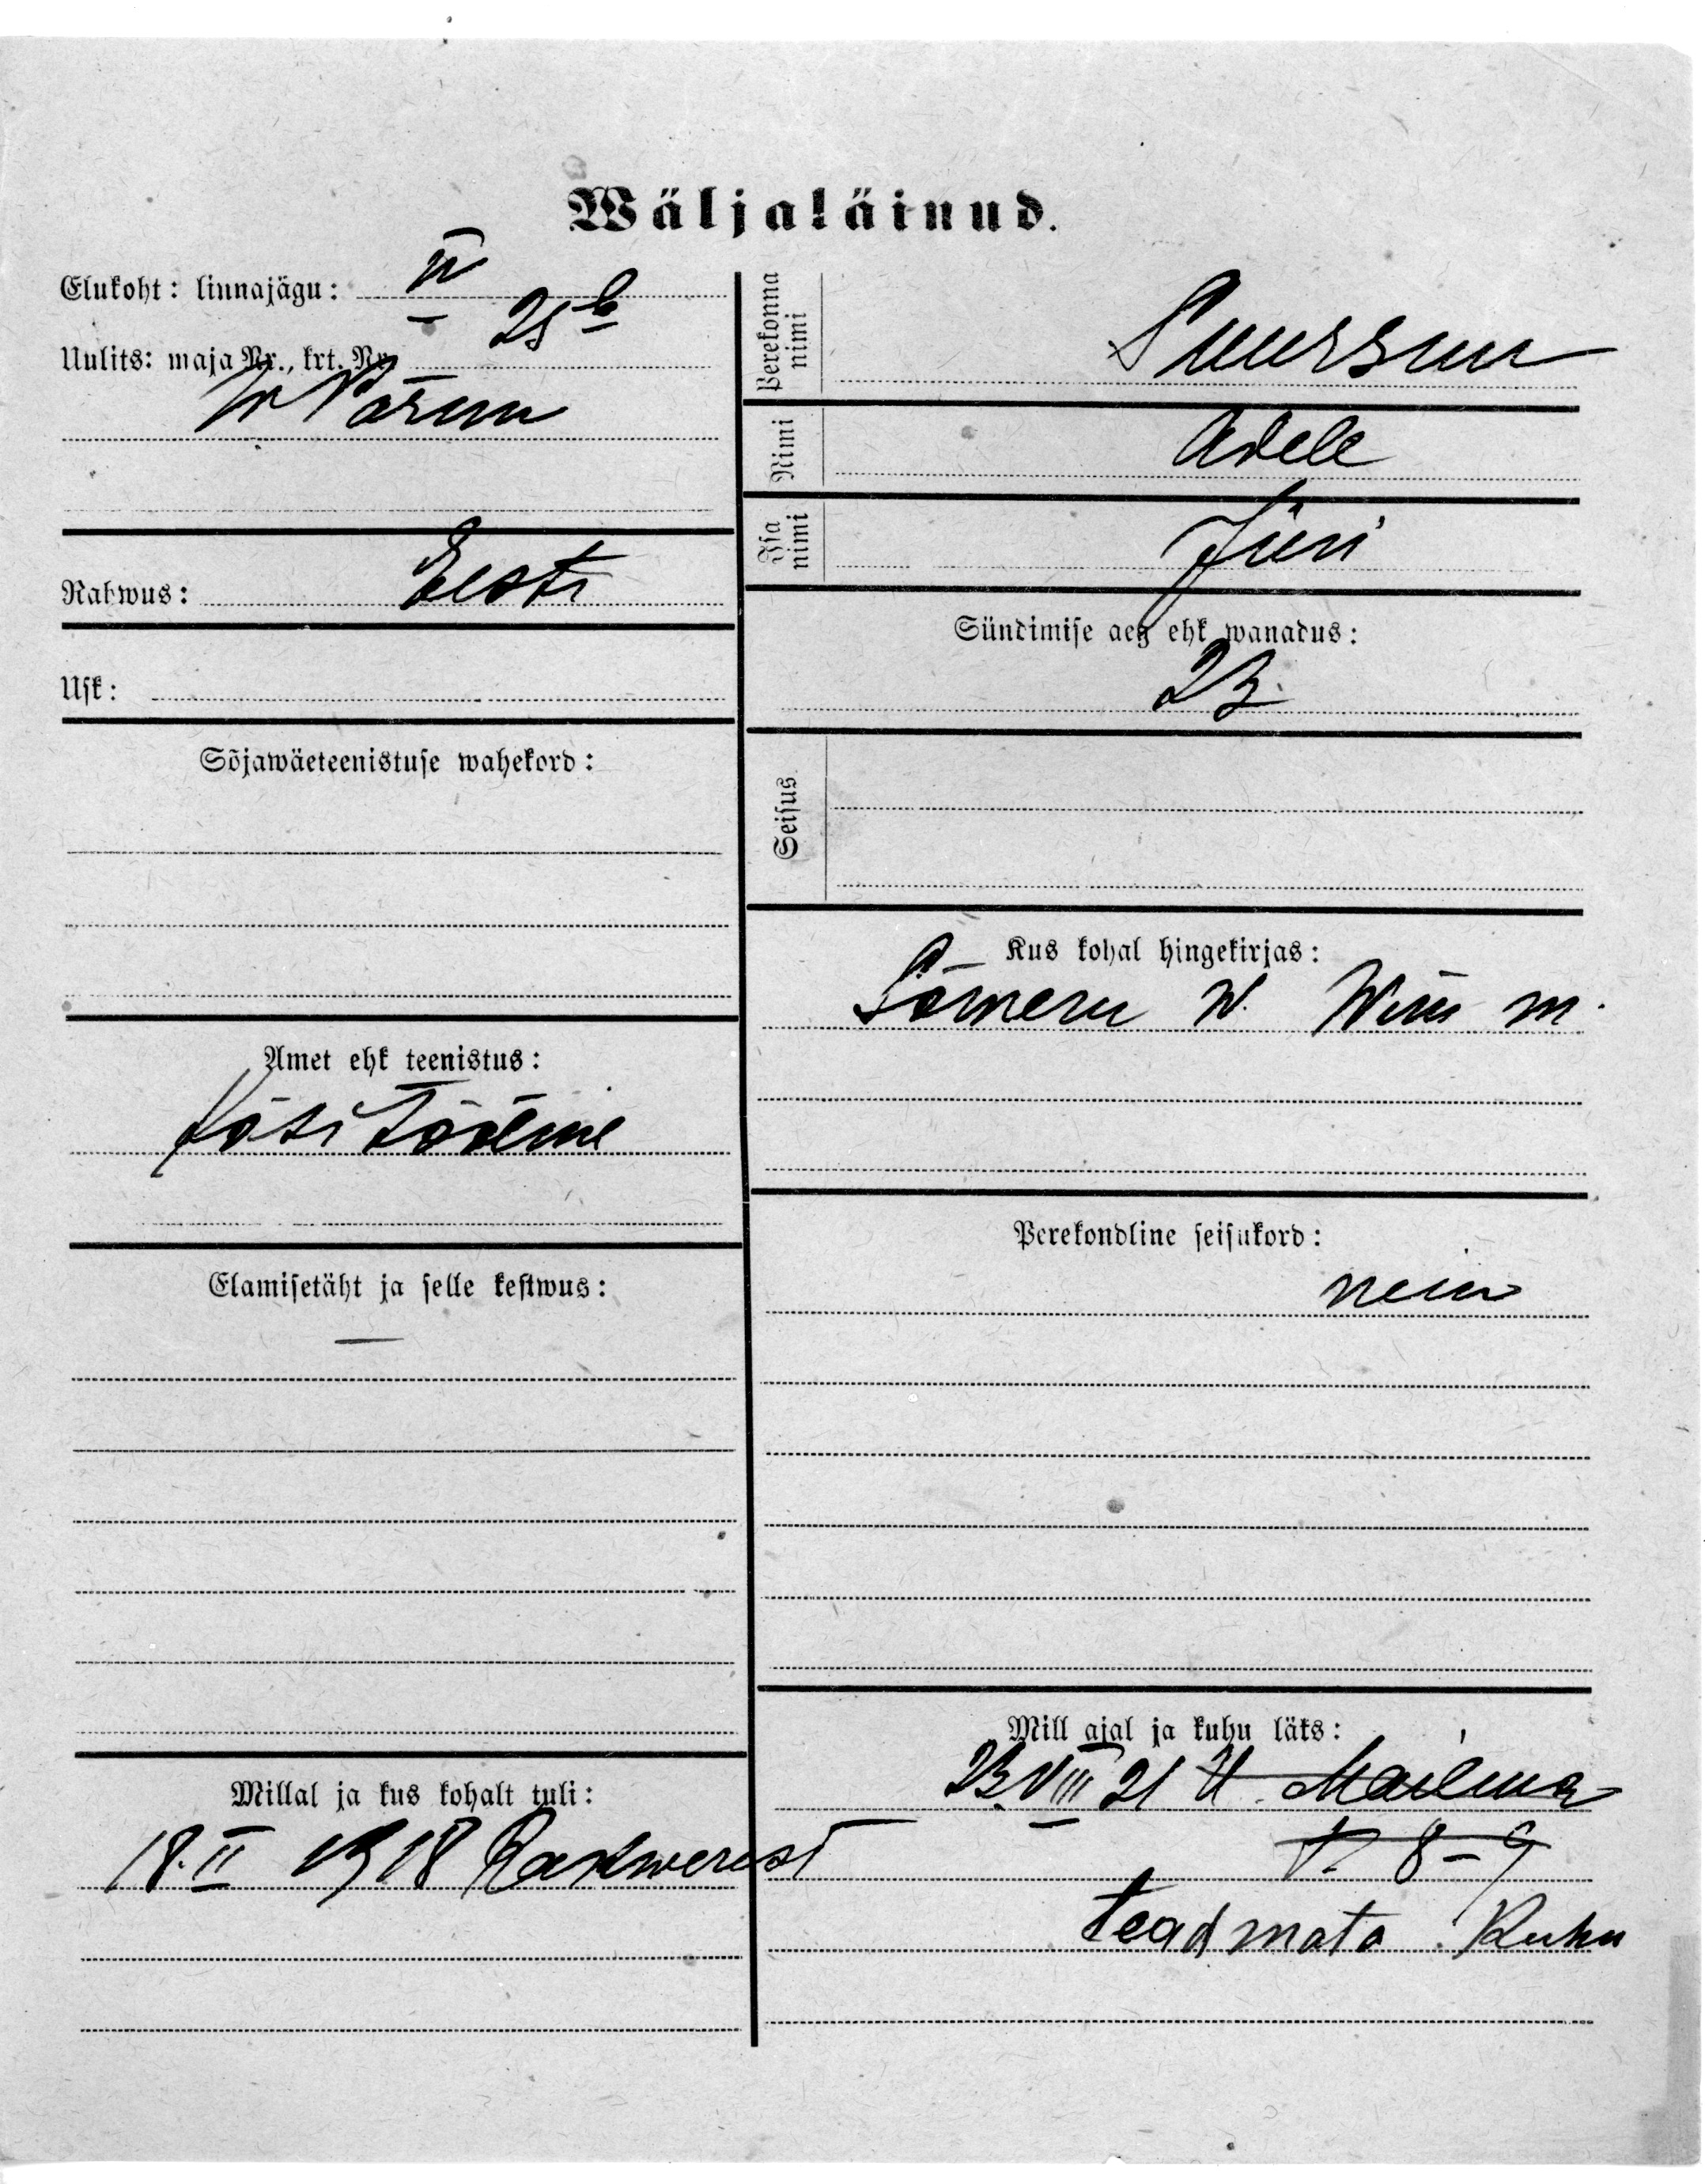 Wäljaläinud.
Elukoht: linnajägu: IV
Uulits: maja Nr., krt. Nr. 25 b
W Pärnu
Rahwus: Eesti
Usk:
Sõjawäeteenistuse wahekord:
Amet ehk teenistus:
Käsitööline
Elamisetäht ja selle kestwus:
—
Millal ja kus kohalt tuli:
18. II 1918 Rakwerest
Perekonna nimi
Nimi Adele
Isa nimi Jüri
Sündimise aeg ehk wanadus:
23.
Seisus
Kus kohal hingekirjas:
Sõmeru W. Wiru m.
Perekondline seisukord:
neiu
Mill ajal ja kuhu läks:
23 VIII 21 U. Maailma
t. 8–9
teadmata Kuhu